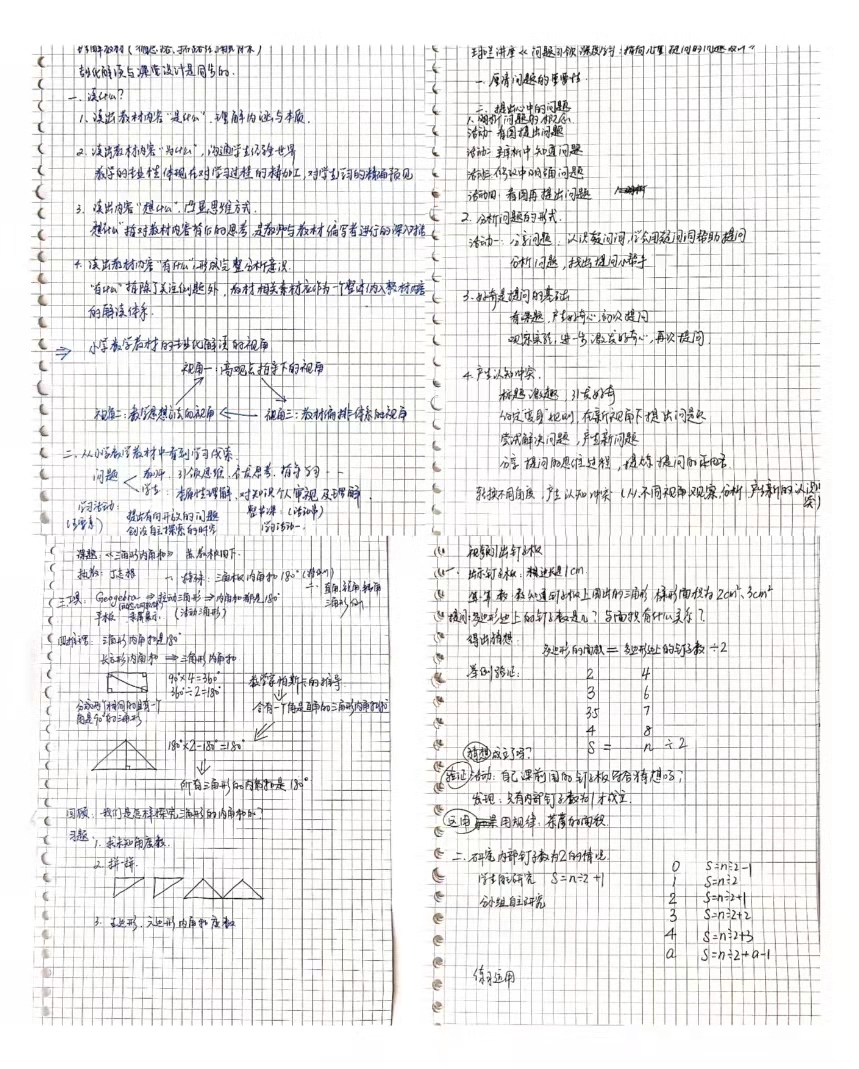 专业化解读与课堂设计是同步的.
一、读什么?
1、读出教材内容"是什么",理解内涵与本质.
2、读出教材内容"为什么",沟通学生经验世界
教学的专业性体现在对学习过程的精加工,对学生学习的精确预见
3、读出内容"想什么",凸显思维方式.
"想什么"指对教材内容背后的思考,是教师与教材编写者进行的深入对话
4、读出教材内容"有什么",形成完整分析意识.
"有什么"指除了关注例题外,教材相关素材应作为一个整体纳入教材内容
的解读体系.
⇒ 小学数学教材的专业化解读的视角
视角一:高观点指导下的视角
视角二:数学思想方法的视角 视角三:教材编排体系的视角
二、从小学数学教材中看到学习代表.
问题 教师:引领思维、含大思考、指导学习…
学生:准确性理解,对知识个人审视及理解.
学习活动: 提出有向开放的问题 整节课:(活动串)
创设自主探索的时空 学习活动一.
一、厘清问题的重要性
二、提出心中的问题
1、辨析问题的形态
活动一:看图提出问题
活动二:辨析中知道问题
活动四:看图再提出问题
2、分析问题的形式.
活动一:分享问题,认识疑问词,学会用疑问词帮助提问
分析问题,找出提问小帮手
3、好奇是提问的基础
看课题,产生好奇心,初次提问
观察实验,进一步激发好奇心,再次提问.
4、产生认知冲突.
标题激趣,引发好奇
约定"变身"规则,在新视角下提出问题
尝试解决问题,产生新问题
分享提问的思维过程,提炼提问的策略
转换不同角度,产生认知冲突(从不同视角观察,分析,产生新的认识冲突)
课题:《三角形内角和》 苏教版四下.
一、特殊:三角板内角和180°
二、直角,锐角,钝角
三角形
三、误: Geogebra ⇒ 拉动三角形 ⇒ 内角和都是180°
平板 (活动三角形)
四、推理: 三角形内角和是180°
长方形内角和 ⇒ 三角形内角和
90°×4=360°
360°÷2=180°
数学家帕斯卡的推导
分成两个相同的且有一个
角是90°的三角形
含有一个角是直角的三角形内角和180°
180°×2-180°=180°
所有三角形的内角和是180°
回顾:我们是怎样探究三角形的内角和的?
习题: 1、求未知角度数.
2、拼一拼.
3、五边形、六边形内角和度数
视频引出钉子板
一、出示钉子板:相邻长是1cm.
算一算、数一数钉子板上围出的三角形、梯形面积为2cm²、3cm²
提问:多边形边上的钉子数是几?与面积有什么关系?
得出猜想:
多边形的面积 = 多边形边上的钉子数÷2
举例验证: 2 4
3 6
3.5 7
4 8
猜想成立了吗? S = n ÷2
验证 活动:自己课前围的钉子板符合猜想吗?
发现:只有内部钉子数为1才成立.
运用 采用规律:茶庵的面积.
二、研究内部钉子数为2的情况.
学生自主研究 S=n÷2+1
分小组自主研究
0 S=n÷2-1
1 S=n÷2
2 S=n÷2+1
3 S=n÷2+2
4 S=n÷2+3
a S=n÷2+a-1
练习运用